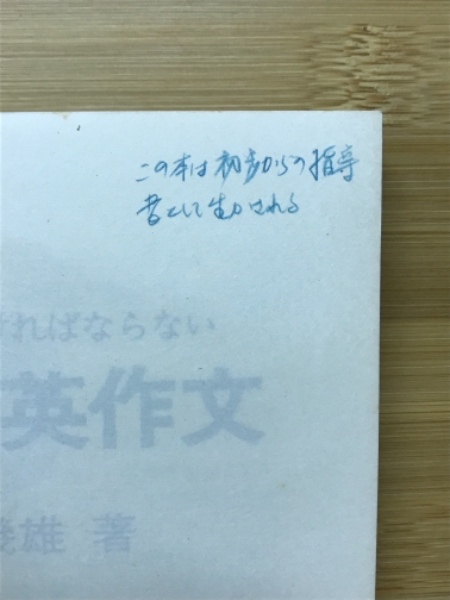 この本は初歩からの指導
書として生かされる
ければならない
英作文
雄 著